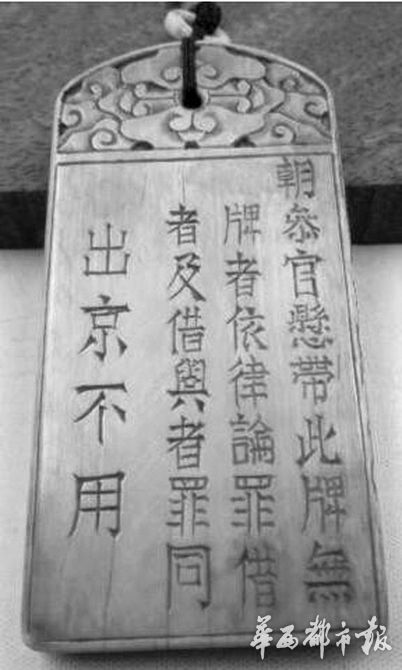 朝叅官懸帶此牌無
牌者依律論罪借
者及借與者罪同
出京不用
華西都市报